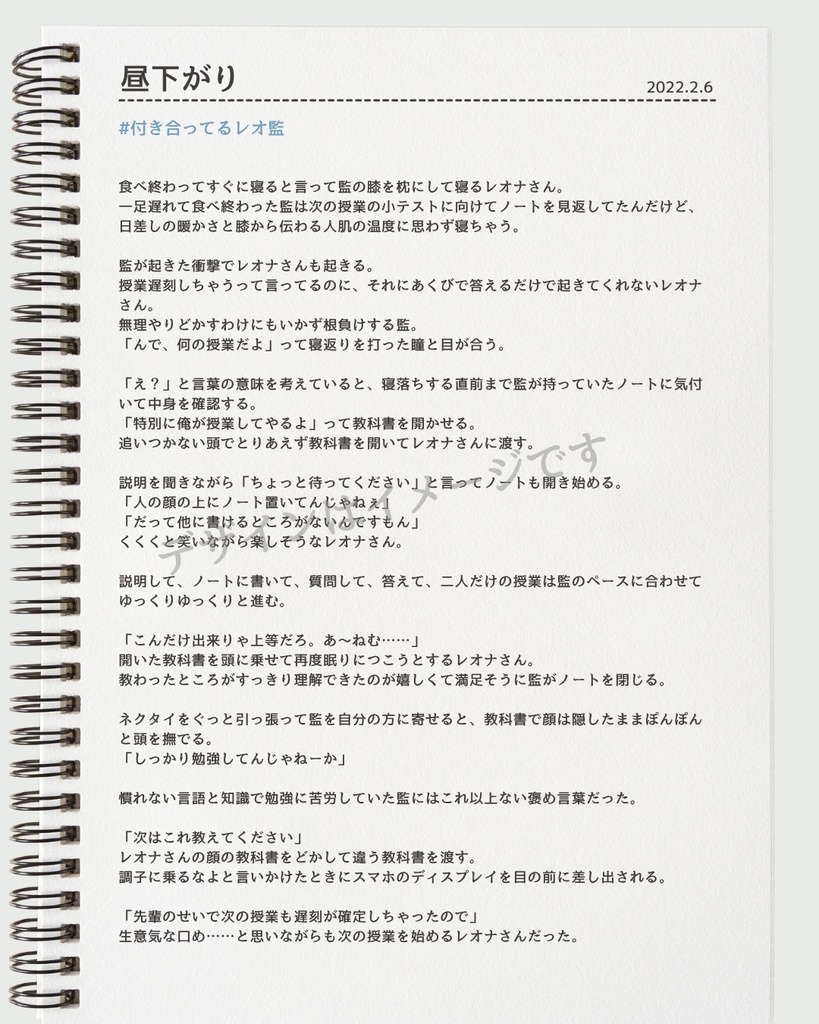 昼下がり
2022.2.6
#付き合ってるレオ監
食べ終わってすぐに寝ると言って監の膝を枕にして寝るレオナさん。
一足遅れて食べ終わった監は次の授業の小テストに向けてノートを見返してたんだけど、
日差しの暖かさと膝から伝わる人肌の温度に思わず寝ちゃう。
監が起きた衝撃でレオナさんも起きる。
授業遅刻しちゃうって言ってるのに、それにあくびで答えるだけで起きてくれないレオナ
さん。
無理やりどかすわけにもいかず根負けする監。
「んで、何の授業だよ」って寝返りを打った瞳と目が合う。
「え？」と言葉の意味を考えていると、寝落ちする直前まで監が持っていたノートに気付
いて中身を確認する。
「特別に俺が授業してやるよ」って教科書を開かせる。
追いつかない頭でとりあえず教科書を開いてレオナさんに渡す。
説明を聞きながら「ちょっと待ってください」と言ってノートも開き始める。
「人の顔の上にノート置いてんじゃねぇ」
「だって他に書けるところがないんですもん」
くくくと笑いながら楽しそうなレオナさん。
デザインはイメージです
説明して、ノートに書いて、質問して、答えて、二人だけの授業は監のペースに合わせて
ゆっくりゆっくりと進む。
「こんだけ出来りゃ上等だろ。あ〜ねむ……」
開いた教科書を頭に乗せて再度眠りにつこうとするレオナさん。
教わったところがすっきり理解できたのが嬉しくて満足そうに監がノートを閉じる。
ネクタイをぐっと引っ張って監を自分の方に寄せると、教科書で顔は隠したままぽんぽん
と頭を撫でる。
「しっかり勉強してんじゃねーか」
慣れない言語と知識で勉強に苦労していた監にはこれ以上ない褒め言葉だった。
「次はこれ教えてください」
レオナさんの顔の教科書をどかして違う教科書を渡す。
調子に乗るなよと言いかけたときにスマホのディスプレイを目の前に差し出される。
「先輩のせいで次の授業も遅刻が確定しちゃったので」
生意気な口め……と思いながらも次の授業を始めるレオナさんだった。